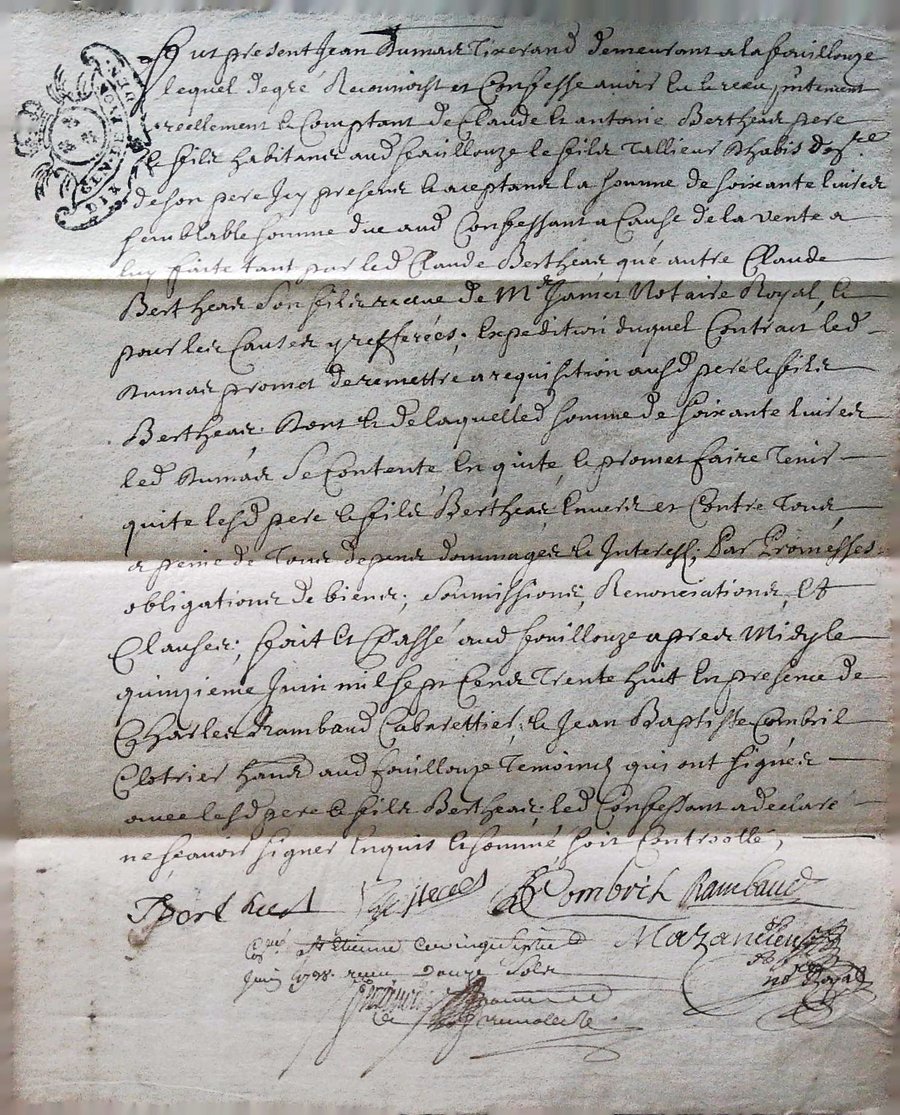 Fut present Jean Dumas Tixerand demeurant a la fouillouze
lequel de gré Reconnoist et Confesse avoir Eu et receu, p'ntement
reellement et Comptant de Claude et antoine Bertheas pere
et fils habitans aud fouillouze le fils Tallieur
de son pere Icy presens et aceptans la somme de soixante livres
semblable somme due aud Confessant a Cause de la vente a
luy faite tant par led Claude Bertheas, que autre Claude
Bertheas son fils recue de Me James Notaire Royal, et
pour les Causes y refferées; Expedition duquel Contrait led
Dumas promet de remettre a requisition ausd pere et fils
Bertheas. Dont et de laquelle d somme de soixante livres
led Dumas Se Contente, En quite, et promet faire Tenir
quite lesd pere et fils Bertheas, Envers et Contre Tous,
a peine de Tous depens dommages et Interest; Par Promesses
obligations de biens; Soumissions, Renonciations, Et
Clauses; fait et Passé aud fouillouze apres Midy le
quinzieme Juin mil sept Cens Trente huit En presence de
Charles Rambaud Cabarettier, et Jean Baptiste Combril
Clotrier aud fouillouze Temoins qui ont signés
avec lesd pere et fils Bertheas; led Confessant a declaré
ne sçavoir signer Enquis et sommé, soit Controollé,
Bertheas Berteas Combril Rambaud
St Etienne Mazancieux
Juin 1738. receu Douze Sols
no. Royal
DIX